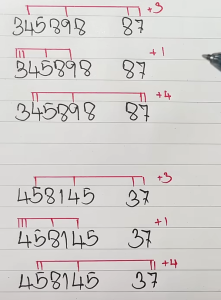 +3
345898 87
+1
345898 87
+4
345898 87
+3
458145 37
+1
458145 37
+4
458145 37